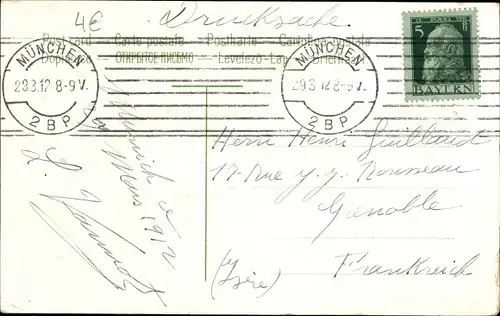 4€ Drucksache
Postcard - Carte postale - Postkarte - Cartolina postale
ОТКРЫТОЕ ПИСЬМО - Levelező-Lap
MÜNCHEN
29.3.12 8-9 V.
2 B P
MÜNCHEN
29.3.12 8-9 V.
2 B P
5
BAYERN
Munich
Mars 1912
Herrn Henri Guillaud
17 Rue J. J. Rousseau
Grenoble
(Isère) Frankreich